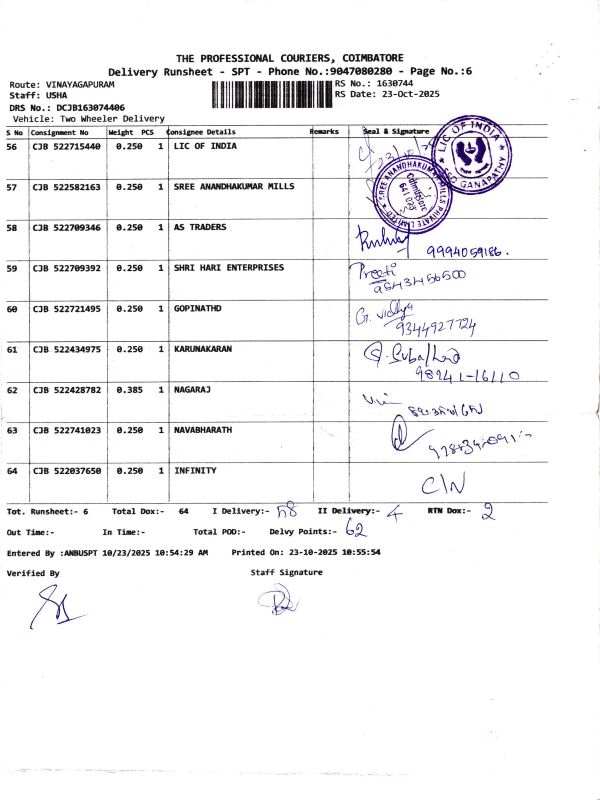 THE PROFESSIONAL COURIERS, COIMBATORE
Delivery Runsheet - SPT - Phone No.:9047080280 - Page No.:6
Route: VINAYAGAPURAM
RS No.: 1630744
Staff: USHA
RS Date: 23-Oct-2025
DRS No.: DCJB163074406
Vehicle: Two Wheeler Delivery
S No Consignment No Weight PCS Consignee Details Remarks Seal & Signature
56 CJB 522715440 0.250 1 LIC OF INDIA
LIC OF INDIA GANAPATHY
57 CJB 522582163 0.250 1 SREE ANANDHAKUMAR MILLS
SREE ANANDHAKUMAR MILLS PRIVATE LIMITED Coimbatore
58 CJB 522709346 0.250 1 AS TRADERS
9994059186.
59 CJB 522709392 0.250 1 SHRI HARI ENTERPRISES Preeti
9843456500
60 CJB 522721495 0.250 1 GOPINATHD G. Vidhya
9344927724
61 CJB 522434975 0.250 1 KARUNAKARAN
98941-16110
62 CJB 522428782 0.385 1 NAGARAJ
63 CJB 522741023 0.250 1 NAVABHARATH
64 CJB 522037650 0.250 1 INFINITY C/N
Tot. Runsheet:- 6 Total Dox:- 64 I Delivery:- 58 II Delivery:- 4 RTN Dox:- 2
Out Time:- In Time:- Total POD:- Delvy Points:- 62
Entered By :ANBUSPT 10/23/2025 10:54:29 AM Printed On: 23-10-2025 10:55:54
Verified By Staff Signature